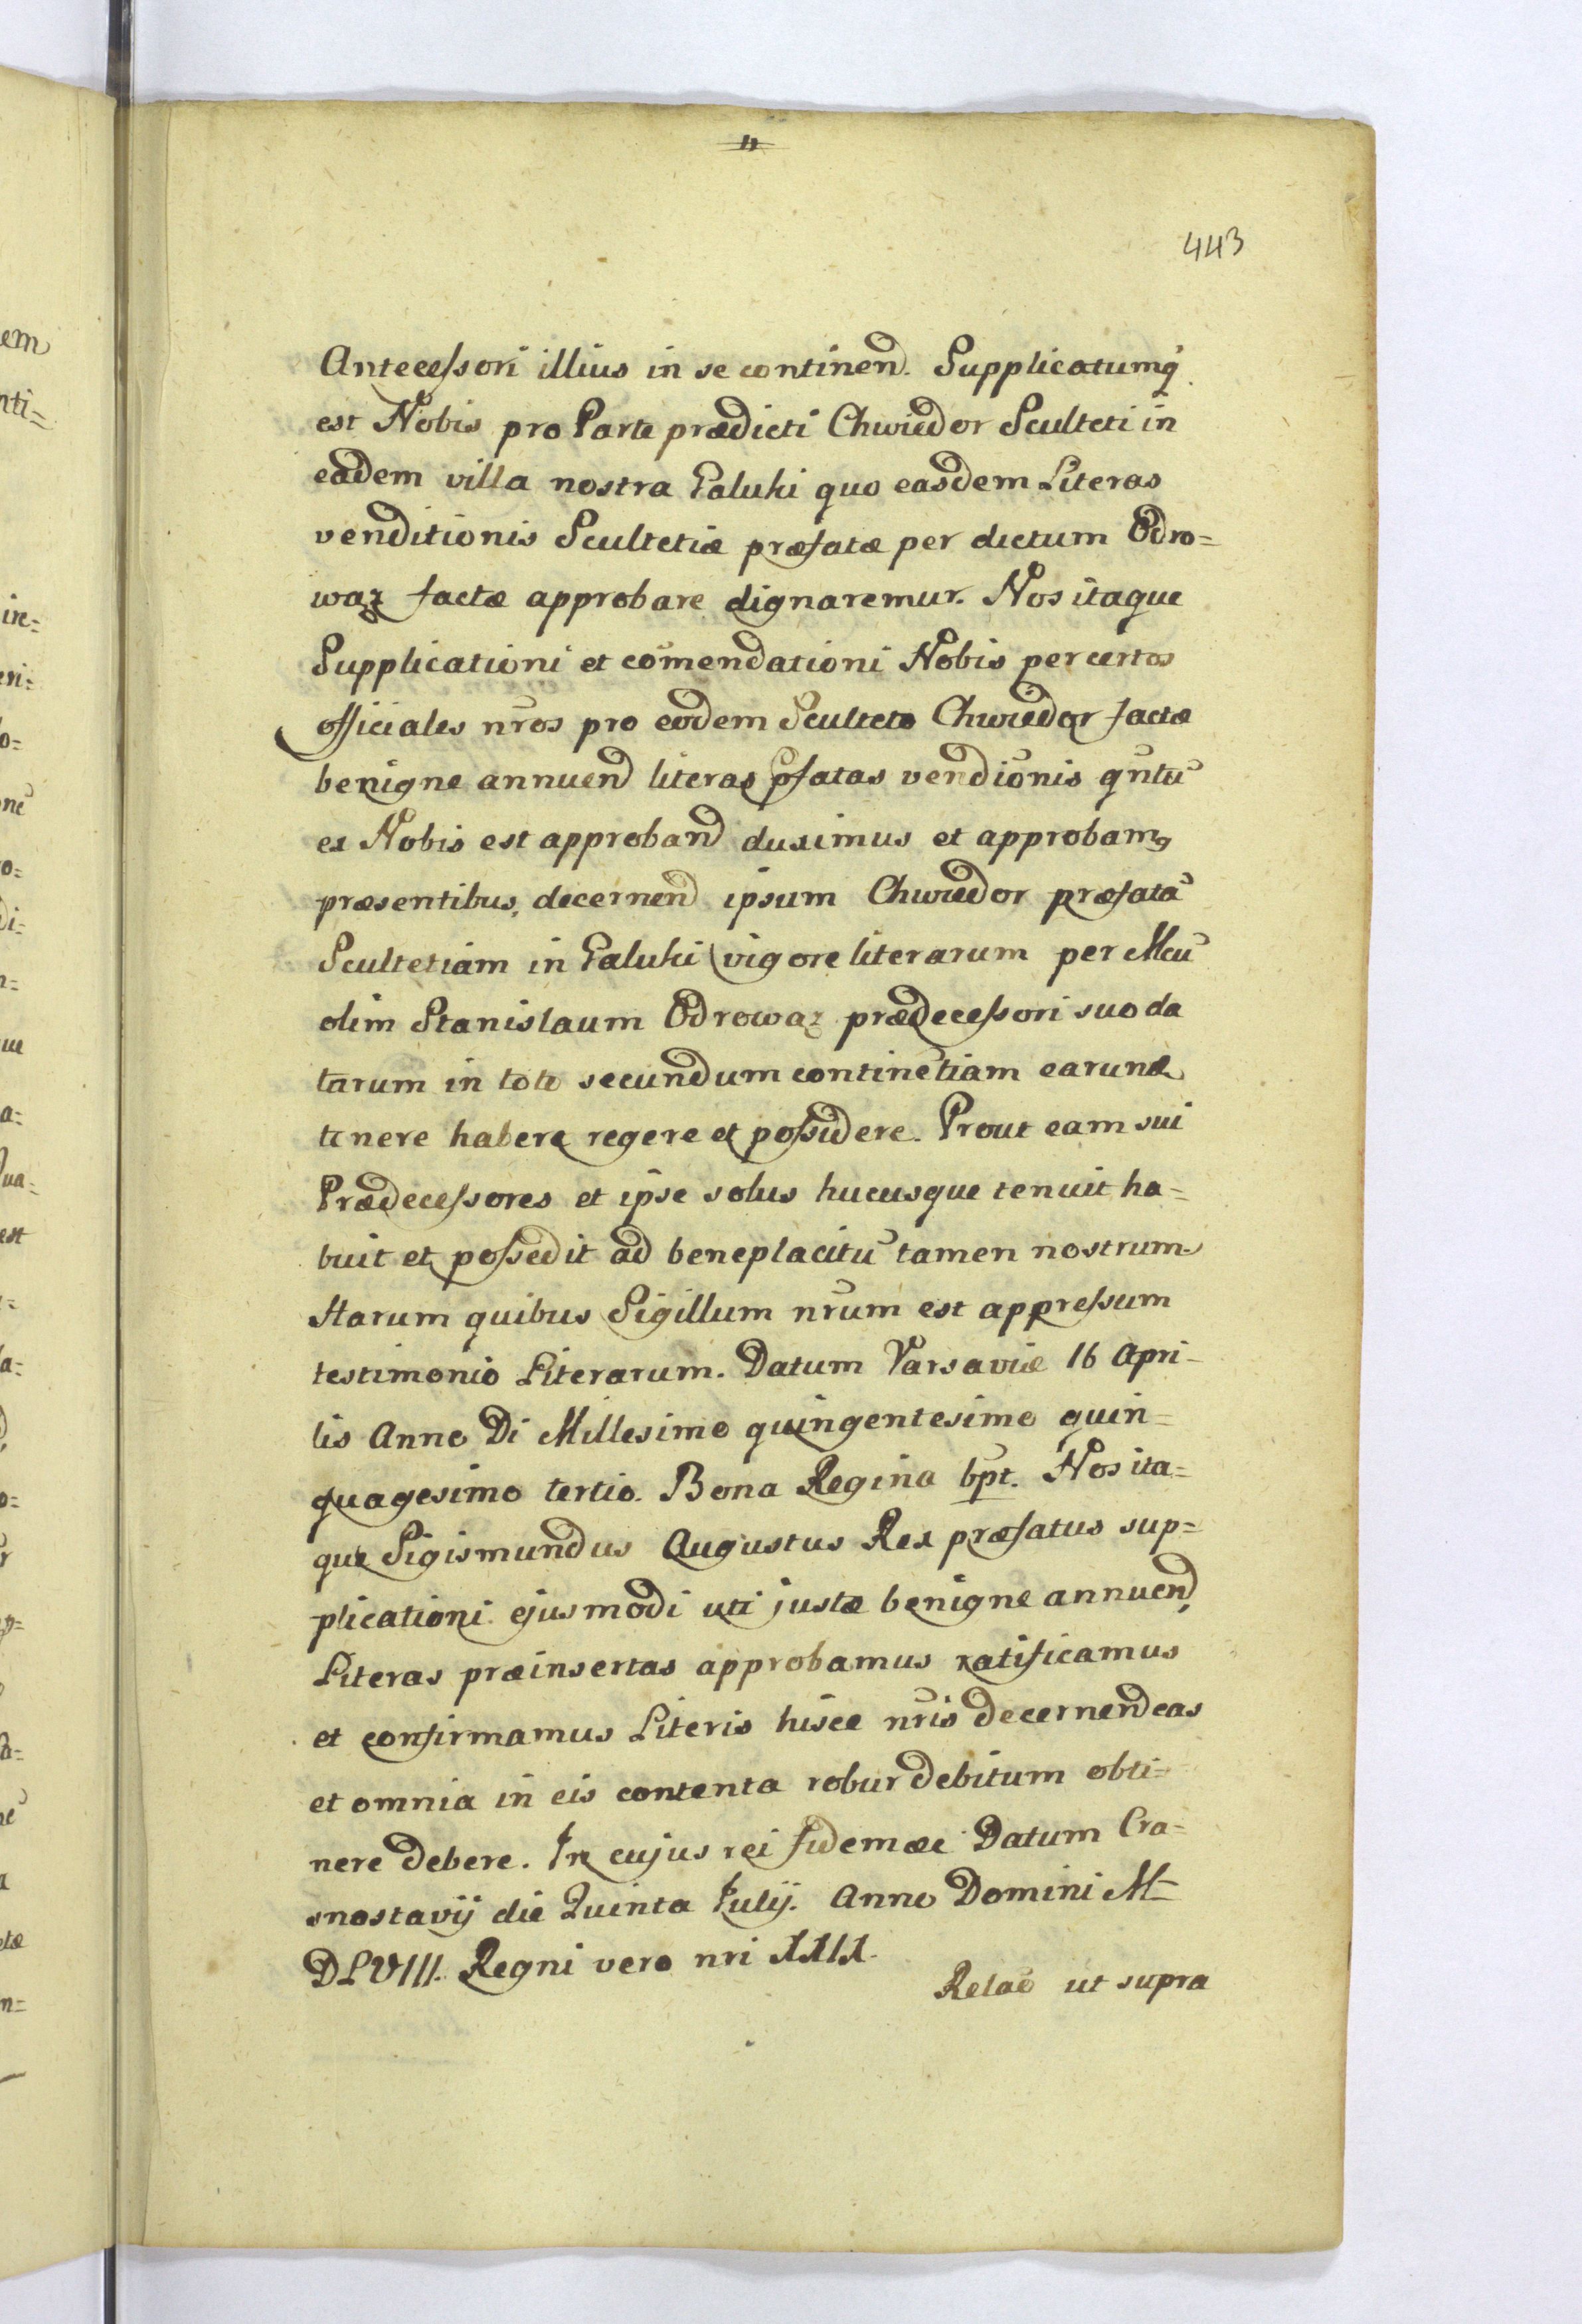 443
Antecessori illius in se continend. Supplicatumq
est Nobis pro Parte prædicti Chwiedor Sculteti in
eadem villa nostra Galuki quo easdem Literas
venditionis Scultetiæ præfatæ per dictum Odro=
waz factæ approbare dignaremur. Nos itaque
Supplicationi et com̄endationi Nobis per certos
officiales nr̄os pro eodem Sculteto Chwiedor factæ
benigne annuend literas pfatas vendiōnis qn̄tū
ex Nobis est approband duximus et approbam9
præsentibus, decernend ipsum Chwiedor præfatā
Scultetiam in Galuki vigore literarum per Mcū
olim Stanislaum Odrowaz prædecessori suo da
tarum in toto secundum continētiam earund
tenere habere regere et possidere. Prout eam sui
Prædecessores et ipse solus hucusque tenuit ha=
buit et possedit ad beneplacitū tamen nostrum.
Harum quibus Sigillum nr̄um est appressum
testimonio Literarum. Datum Varsaviæ 16 Apri-
lis Anno Di Millesimo quingentesimo quin=
quagesimo tertio. Bona Regina bpt. Nos ita=
que Sigismundus Augustus Rex præfatus sup=
plicationi ejusmodi uti justæ benigne annuend,
Literas præinsertas approbamus ratificamus
et confirmamus Literis hisce nr̄is decernend eas
et omnia in eis contenta robur debitum obti=
nere debere. In cujus rei fidem æc Datum Cra=
snostavij die Quinta Julij. Anno Domini M
DLVIII. Regni vero nri
Relaō ut supra